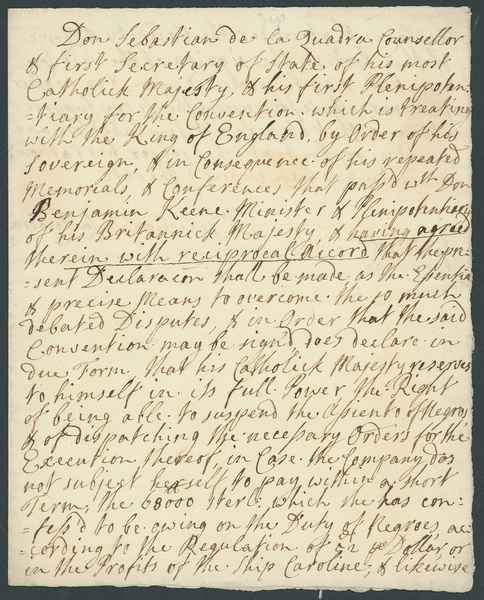 Don Sebastian de la Quadra Counsellor
& first Secretary of State of his most
Catholick Majesty, & his first Plenipoten:
=tiary for the Convention which is treating
with the King of England, by Order of his
Sovereign, & in Consequence of his repeated
Memorials, & Conferences that pass'd wth Don
Benjamin Keene Minister & Plenipotentiary
of his Britannick Majesty, & having agreed
therein with reciprocal Accord that the pre=
=sent Declaracon shall be made as the Essential
& precise Means to overcome the so much
debated Disputes, & in Order that the said
Convention may be sign'd does declare in
due Form, that his Catholick Majesty reserves
to himself in its full Power the Right
of being able to suspend the Assiento of Negros,
& of dispatching the necessary Orders for the
Execution thereof, in Case the Company does
not subject herself to pay within a short
Term, the 68000 Sterl: which she has con=
=fess'd to be owing on the Duty of Negroes, ac=
=cording to the Regulation of 52 d Dollar, or
in the Profits of the Ship Caroline; & likewise